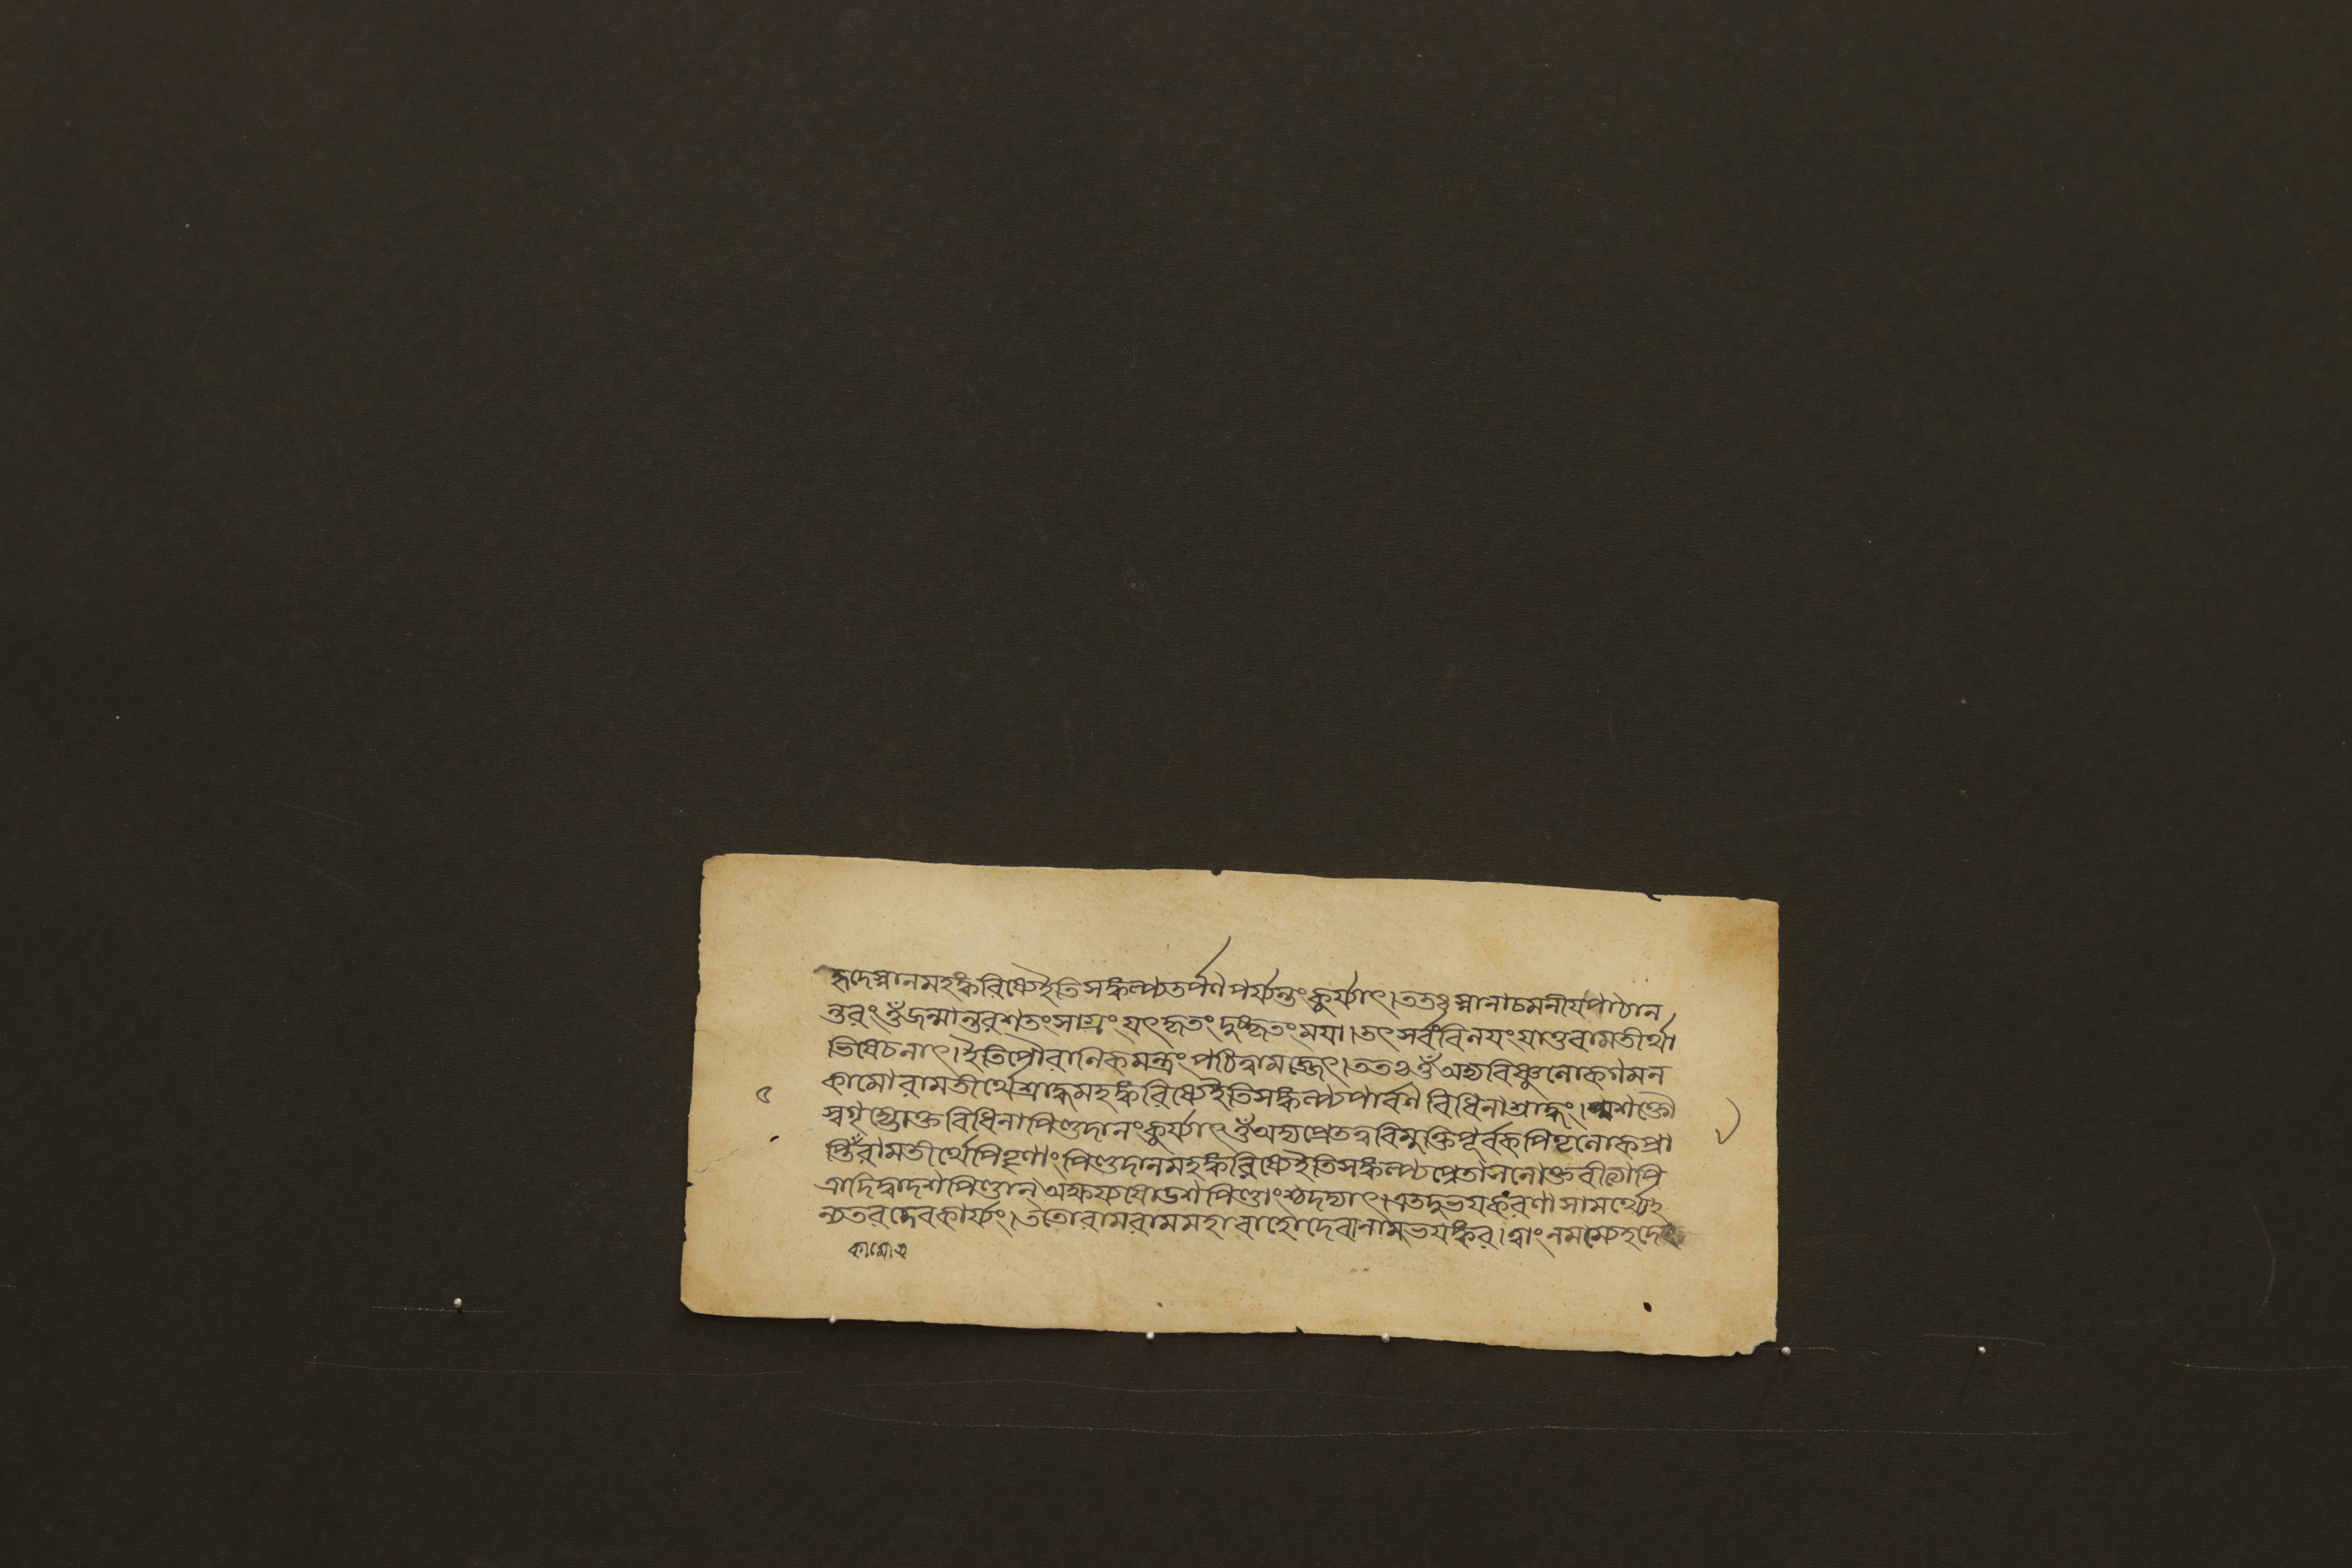 হ্রদেস্নানমহঙ্করিষ্যেইতিসঙ্কল্প্যতর্পণপর্য্যন্তংকুর্য্যাৎ।ততঃস্নানাচমনীযপাঠান
ন্তরংওঁজন্মান্তরশতংসাগ্রংযৎকৃতংদুষ্কৃতংময়া।তৎসর্বংবিলযংযাতুরামতীর্থা
ভিষেচনাৎ।ইতিপৌরানিকমন্ত্রংপঠিত্বামজ্জেৎ।ততঃওঁঅদ্যবিষ্ণুলোকগমন
কামোরামতীর্থেশ্রাদ্ধমহঙ্করিষ্যেইতিসঙ্কল্প্যপার্বণবিধিনাশ্রাদ্ধং।অশক্তৌ
স্বগৃহ্যোক্তবিধিনাপিণ্ডদানংকুর্য্যাৎওঁঅদ্যপ্রেতত্ববিমুক্তিপূর্বকপিতৃলোকপ্রা
প্তিঁরামতীর্থেপিতৄণাংপিণ্ডদানমহঙ্করিষ্যেইতিসঙ্কল্প্যপ্রেতাসনোক্তবীত্যাপি
ত্রাদিদ্বাদশপিণ্ডান্অক্ষয্যষোডশপিণ্ডাংশ্চদদ্যাৎ।এতদুভযকরণাসামর্থ্যেহ
ন্যতরদেবকার্য্যং।ততোরামরামমহাবাহোদেবানামভযঙ্কর।ত্বাংনমস্যেহদে
কামোএ
৫